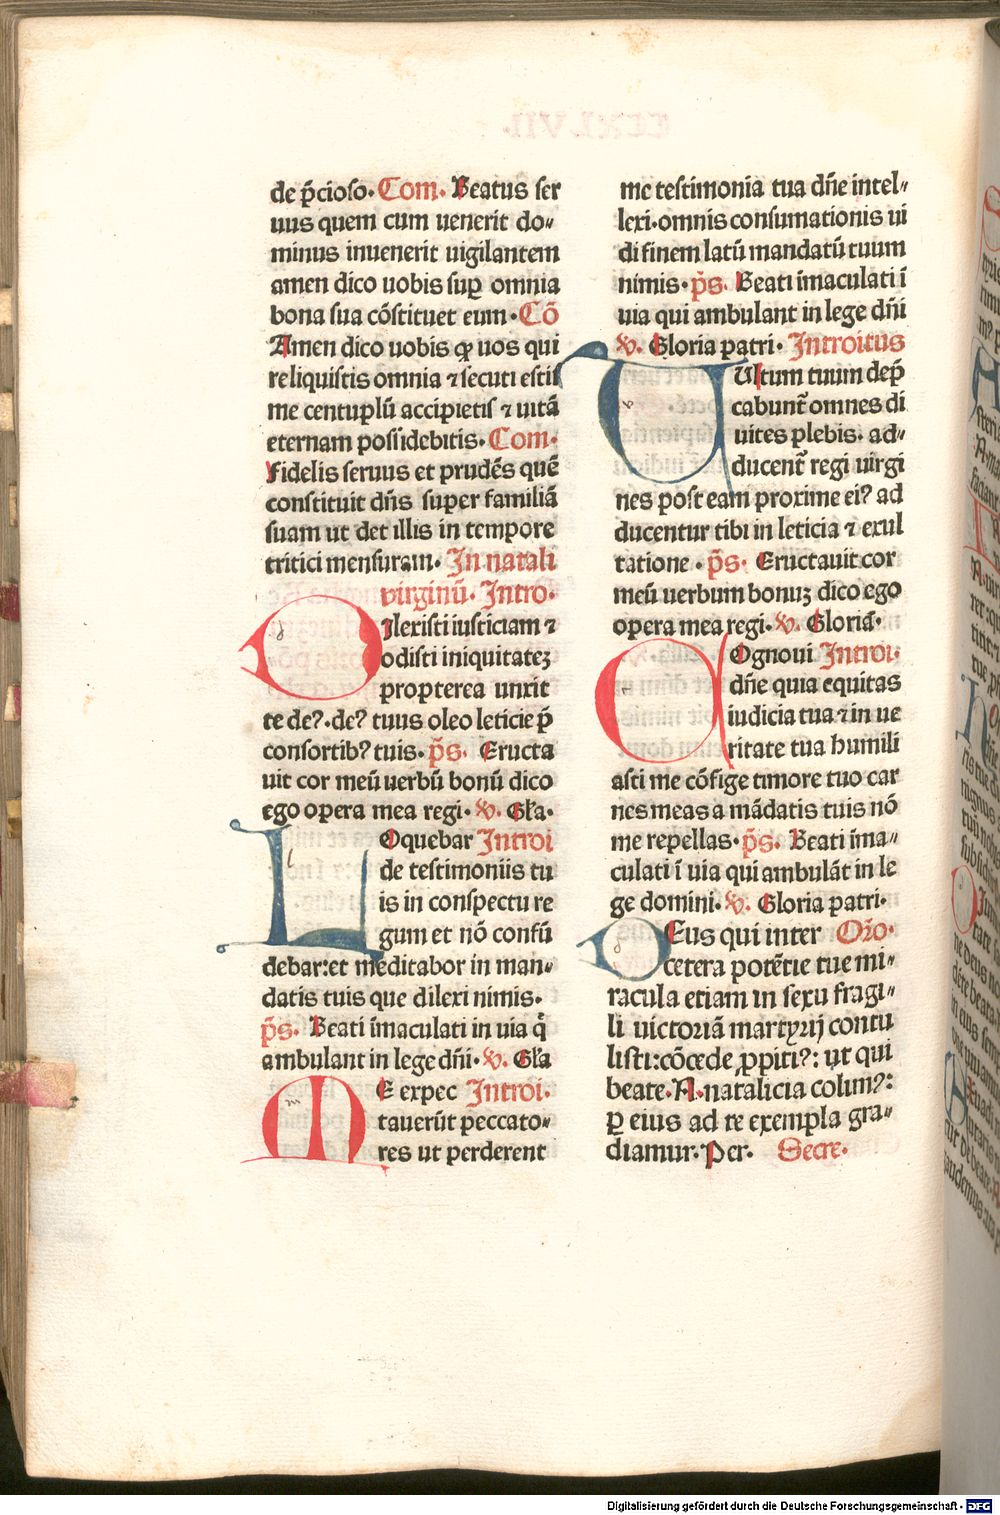 de p̄cioso. Com. Beatus ser
uus quem cum uenerit do⸗
minus inuenerit uigilantem
amen dico uobis sup̱ omnia
bona sua cōstituet eum. Cō
Amen dico uobis ꝙ uos qui
reliquistis omnia ⁊ secuti estis
me centuplū accipietis ⁊ uitā
eternam possidebitis. Com.
Fidelis seruus et prudēs quē
constituit dn̄s super familiā
suam ut det illis in tempore
tritici mensuram. In natali
virginū. Intro.
DIlexisti iusticiam ⁊
odisti iniquitateꝫ
propterea unxit
te deꝰ. deꝰ tuus oleo leticie p̄
consortibꝰ tuis. p̄s. Eructa
uit cor meū uerbū bonū dico
ego opera mea regi. V. Gl̄a.
LOquebar Introi
de testimoniis tu
is in conspectu re
gum et nō confū
debar: et meditabor in man⸗
datis tuis que dilexi nimis.
p̄s. Beati īmaculati in uia q̄
ambulant in lege dn̄i. V. Gl̄a
ME expec Introi.
tauerūt peccato⸗
res ut perderent
me testimonia tua dn̄e intel⸗
lexi. omnis consumationis ui
di finem latū mandatū tuum
nimis. p̄s. Beati īmaculati ī
uia qui ambulant in lege dn̄i
V. Gloria patri. Introitus
VUltum tuum dep̄
cabunt̄ omnes di
uites plebis. ad⸗
ducent̄ regi uirgi
nes post eam proxime eiꝰ ad
ducentur tibi in leticia ⁊ exul
tatione. p̄s. Eructauit cor
meū uerbum bonuꝫ dico ego
opera mea regi. V. Gloria.
COgnoui Introi.
dn̄e quia equitas
iudicia tua ⁊ in ue
ritate tua humili
asti me cōfige timore tuo car
nes meas a mādatis tuis nō
me repellas. p̄s. Beati īma⸗
culati ī uia qui ambulāt in le
ge domini. V. Gloria patri.
DEus qui inter Oro.
cetera potētie tue mi⸗
racula etiam in sexu fragi⸗
li uictoriā martyrij contu
listi: cōcede ꝓpitiꝰ: ut qui
beate. A. natalicia colimꝰ:
ꝑ eius ad te exempla gra⸗
diamur. Per. Secre.
Digitalisierung gefördert durch die Deutsche Forschungsgemeinschaft - DFG